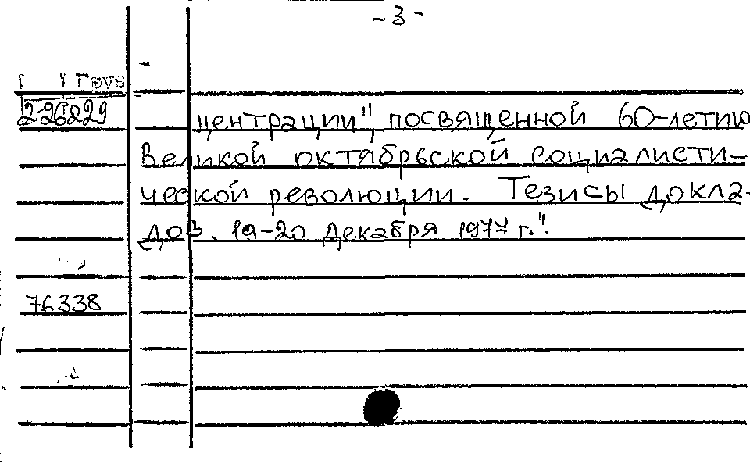 - 3 -
226229
центрации", посвященной 60-летию
Великой октябрьской социалисти-
ческой революции. Тезисы докла-
дов. 19-20 декабря 1977 г.".
76338